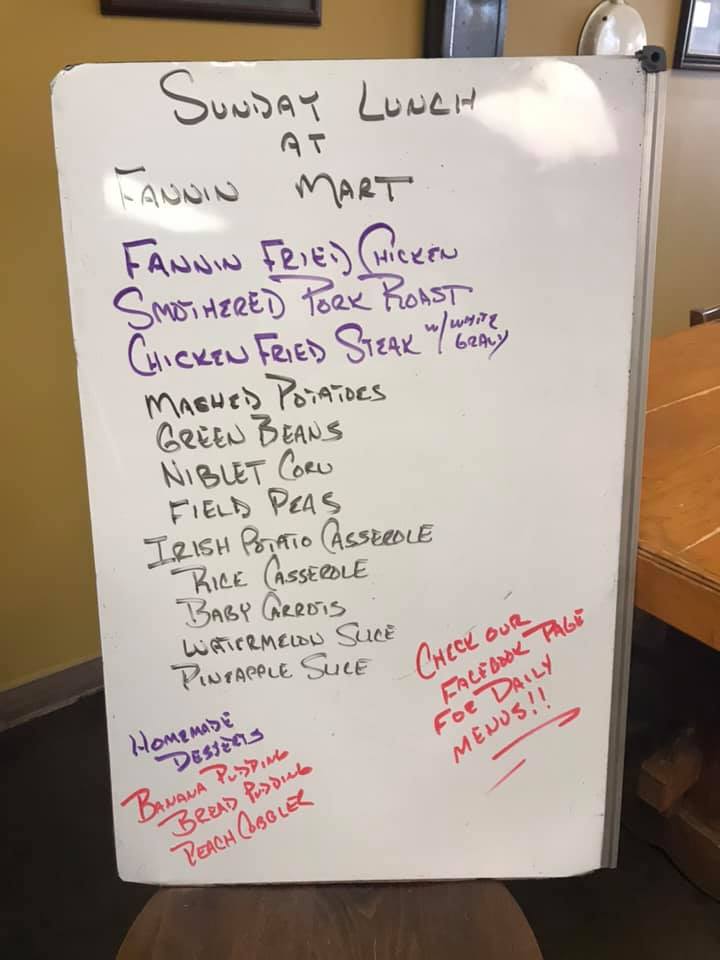 SUNDAY LUNCH
AT
FANNIN MART
FANNIN FRIED CHICKEN
SMOTHERED PORK ROAST
CHICKEN FRIED STEAK W/ WHITE
GRAVY
MASHED POTATOES
GREEN BEANS
NIBLET CORN
FIELD PEAS
IRISH POTATO CASSEROLE
RICE CASSEROLE
BABY CARROTS
WATERMELON SLICE
PINEAPPLE SLICE
CHECK OUR
FACEBOOK PAGE
FOR DAILY
MENUS!!
HOMEMADE
DESSERTS
BANANA PUDDING
BREAD PUDDING
PEACH COBBLER